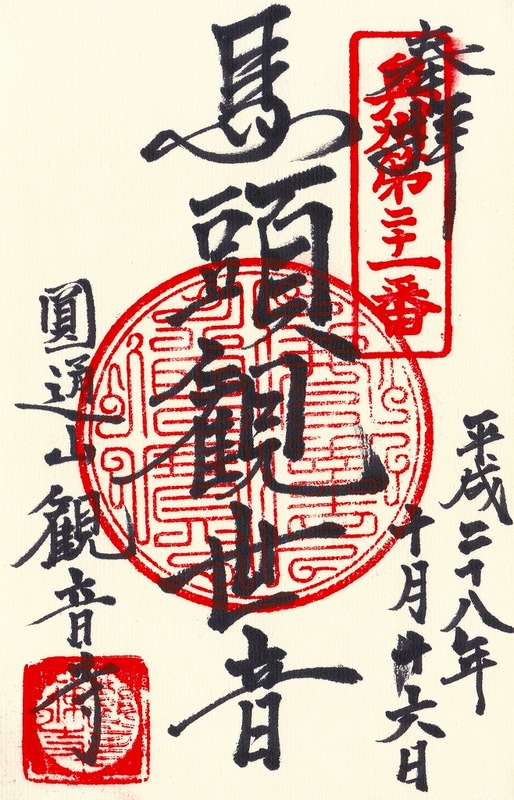 奉拝
奥州第二十一番
平成二十八年
十月廿六日
馬頭観世音
圓通山観音寺